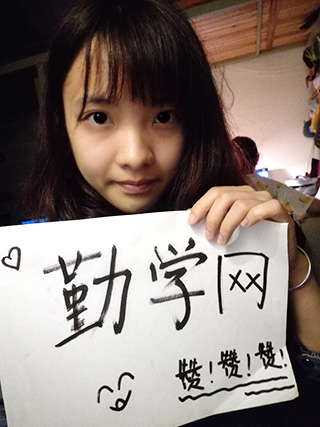 勤学网
赞！赞！赞！